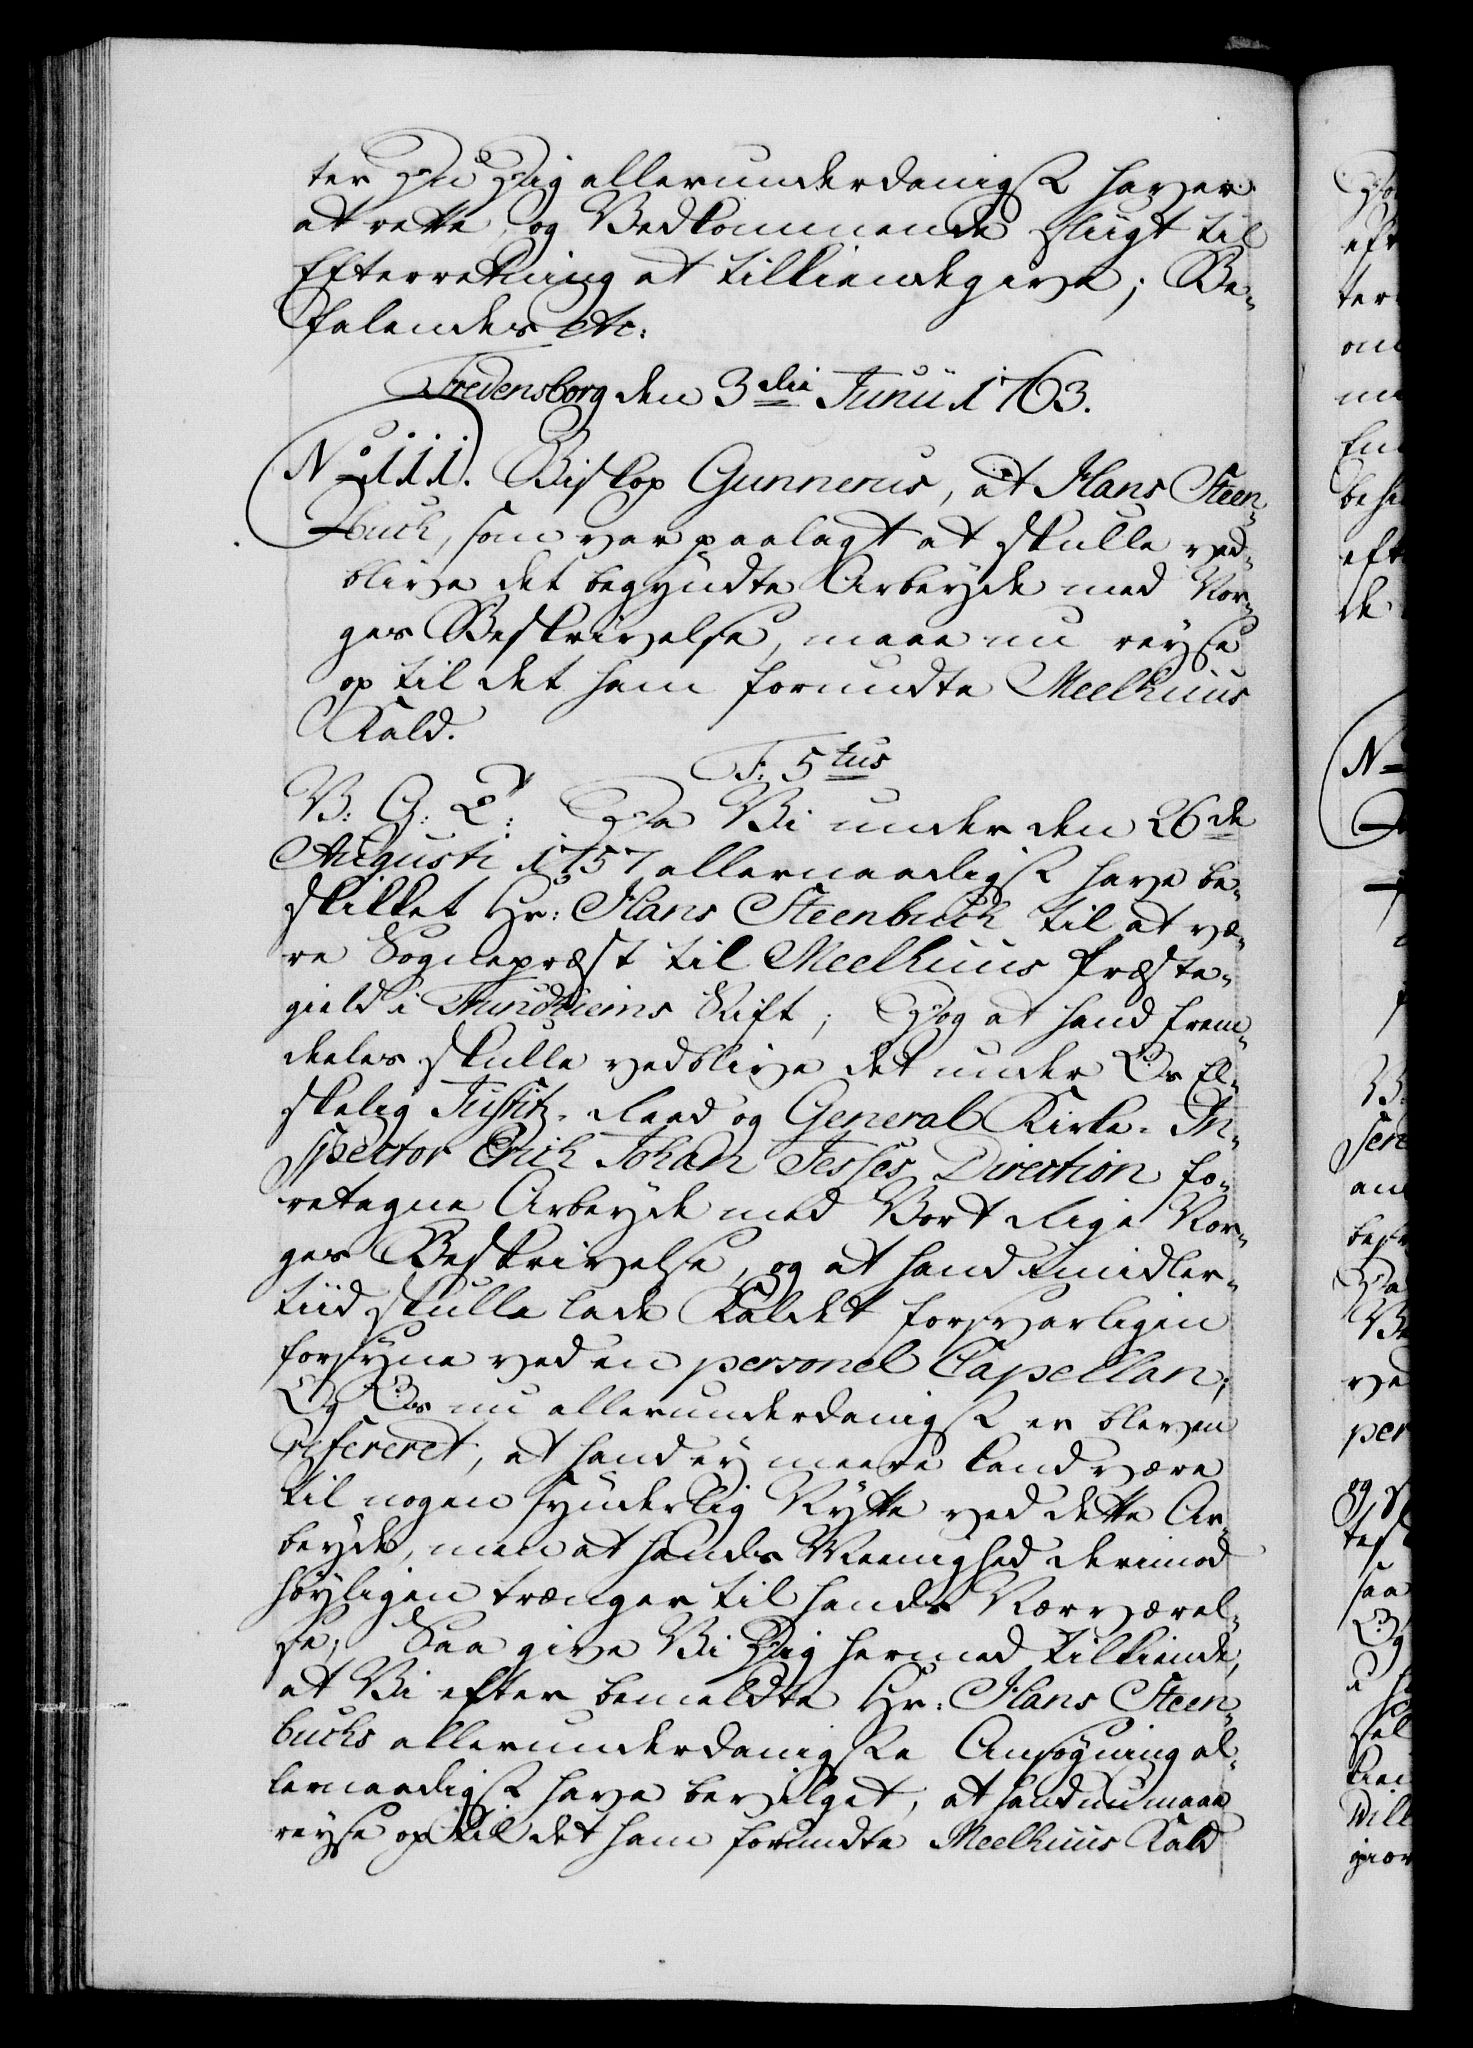 ter Du Dig allerunderdanigst haver
at rette, og Vedkommende sligt til
Efterretning at tilkiendegive; Be-
falendes etc:
Fredensborg den 3die Junii 1763.
No 111. Biskop Gunnerus, at Hans Steen-
buch, som var paalagt at skulle ved-
blive det begyndte Arbeyde med Nor-
ges Beskrivelse, maae nu reyse
op til det ham forundte Meelhuus
Kald.
F: 5tus
V: G: T: Da Vi under den 26de
Augusti 1757 allernaadigst have be-
skikket Hr: Hans Steenbuch til at væ-
re Sognepræst til Meelhuus Præste-
gield i Trundhiems Stift; Dog at hand frem-
deeles skulle vedblive det under Os El-
skelig Justitz-Raad og General Kirke-In-
spector Erich Johan Jesses Direction fo-
retagne Arbeyde med Vort Rige Nor-
ges Beskrivelse, og at hand imidler-
tiid skulle lade Kaldet forsvarligen
forsyne ved en personel Capellan;
Og Os nu allerunderdanigst er bleven
refereret, at hand ey meere kand være
til nogen synderlig Nytte ved dette Ar-
beyde, men at hands Meenighed derimod
høyligen trænger til hands Nærværel-
se; Saa give Vi Dig hermed tilkiende,
at Vi efter bemeldte Hr: Hans Steen-
buchs allerunderdanigste Ansøgning al-
lernaadigst have bevilget, at hand nu maae
reyse op til det ham forundte Meelhuus Kald